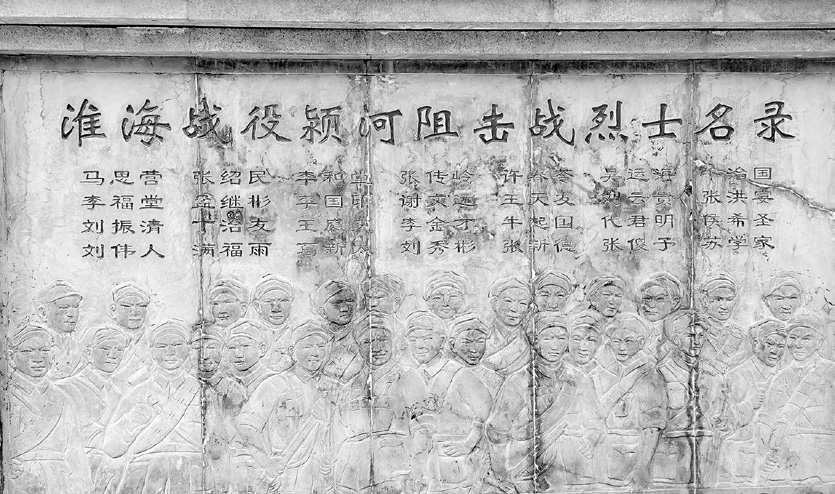 淮海战役颍河阻击战烈士名录
马思营 张绍民 李和 张传岭 许 吴运海 治国
李福堂 继彬 李国 谢 远 王天友 云 张洪
刘振清 治友 王庭 李金才 牛起国 代君明 侯希圣
刘伟人 满福雨 新 刘秀彬 张新德 张俊予 苏学家